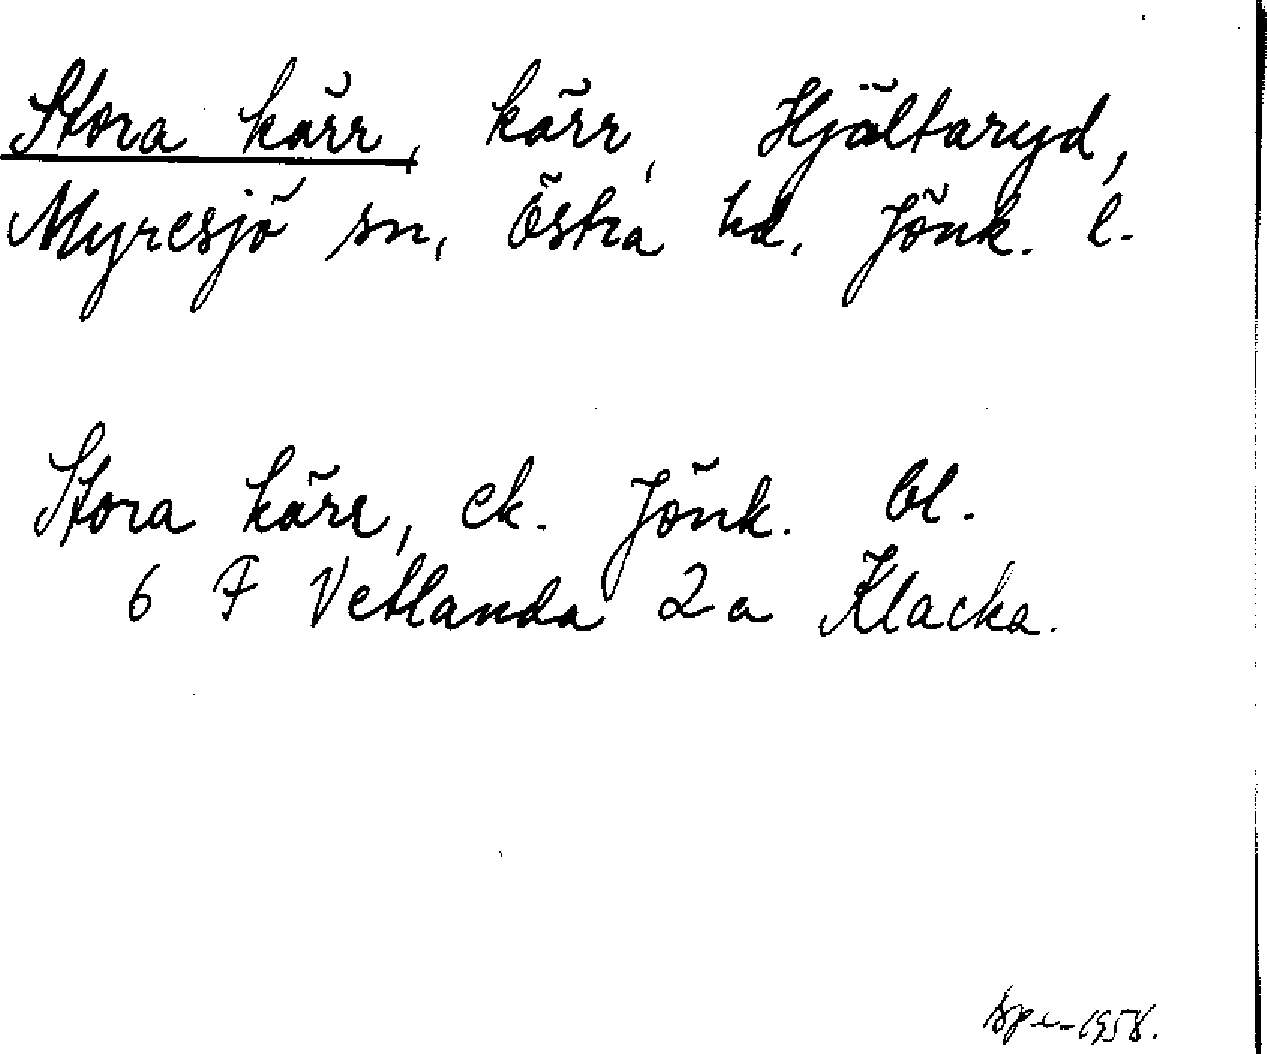 Stora kärr, kärr, Hjältaryd,
Myresjö sn, Östra hd. Jönk. l.
Stora kärr, ek. Jönk. bl.
6 F Vetlanda 2 a Klacka.
1958.